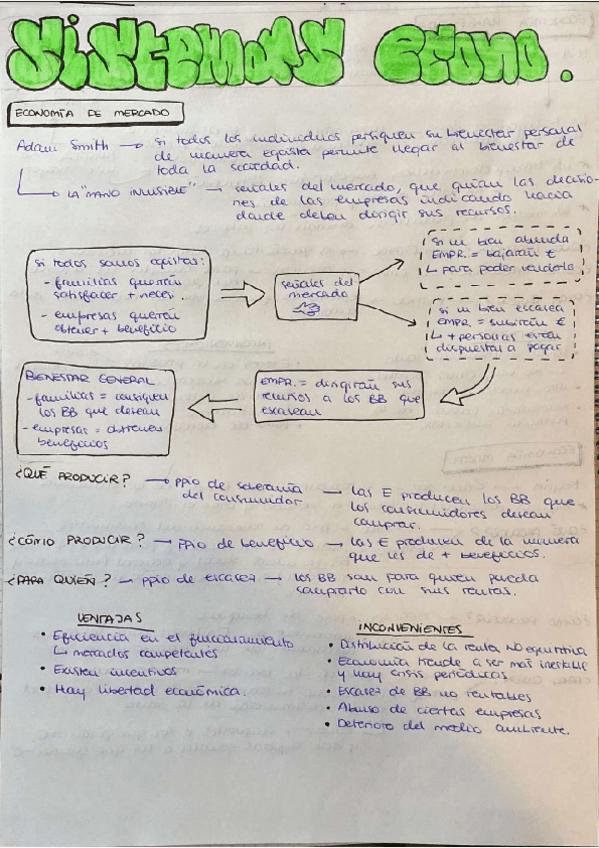 Sistemas econo.
ECONOMÍA DE MERCADO
Adam Smith → si todos los individuos persiguen su bienestar personal
de manera egoísta permite llegar al bienestar de
toda la sociedad.
↳ LA "MANO INVISIBLE" → señales del mercado, que guían las decisio-
nes de las empresas indicando hacia
donde deben dirigir sus recursos.
si todos somos egoístas:
- familias querrán
satisfacer + neces.
- empresas querrán
obtener + beneficio
señales del
mercado
si un bien abunda
EMPR. = bajarán €
↳ para poder venderlo
si un bien escasea
EMPR. = subirán €
↳ + personas están
dispuestas a pagar
EMPR. = dirigirán sus
recursos a los BB que
escasean
BIENESTAR GENERAL
- familias = consiguen
los BB que desean
- empresas = obtienen
beneficios
¿QUÉ PRODUCIR? → ppio de soberanía
del consumidor → las E producen los BB que
los consumidores desean
comprar.
¿CÓMO PRODUCIR? → ppio de beneficio → las E producen de la manera
que les de + beneficios.
¿PARA QUIÉN? → ppio de escasez → los BB son para quien pueda
comprarlo con sus rentas.
VENTAJAS
• Eficiencia en el funcionamiento
↳ mercados competentes
• Existen incentivos
• Hay libertad económica.
INCONVENIENTES
• Distribución de la renta NO equitativa
• Economía tiende a ser más inestable
y hay crisis periódicas
• Escasez de BB no rentables
• Abuso de ciertas empresas
• Deterioro del medio ambiente.